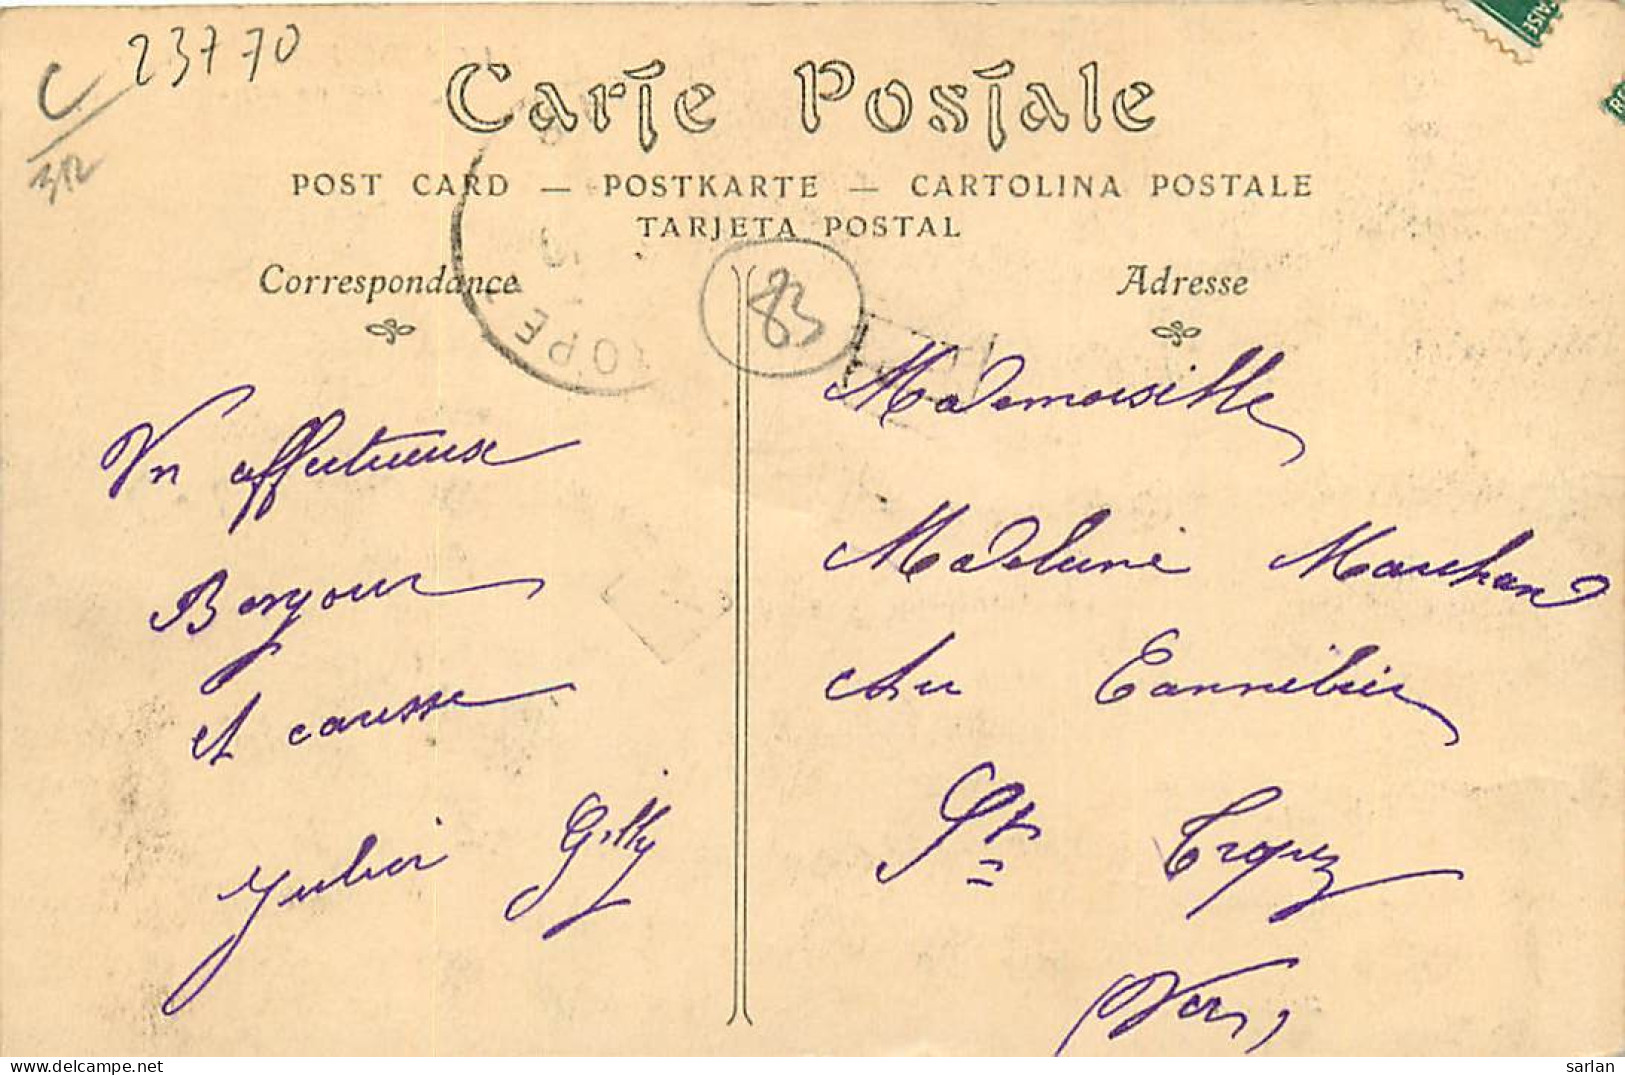 C 23770
Carte Postale
POST CARD — POSTKARTE — CARTOLINA POSTALE
TARJETA POSTAL
Correspondance
Adresse
83
OPE
Un affectueux
Bonjour
et causse
Gilly
Mademoiselle
Madeleine Marchand
Au Cannebier
St Tropez
(Var)
sarlan